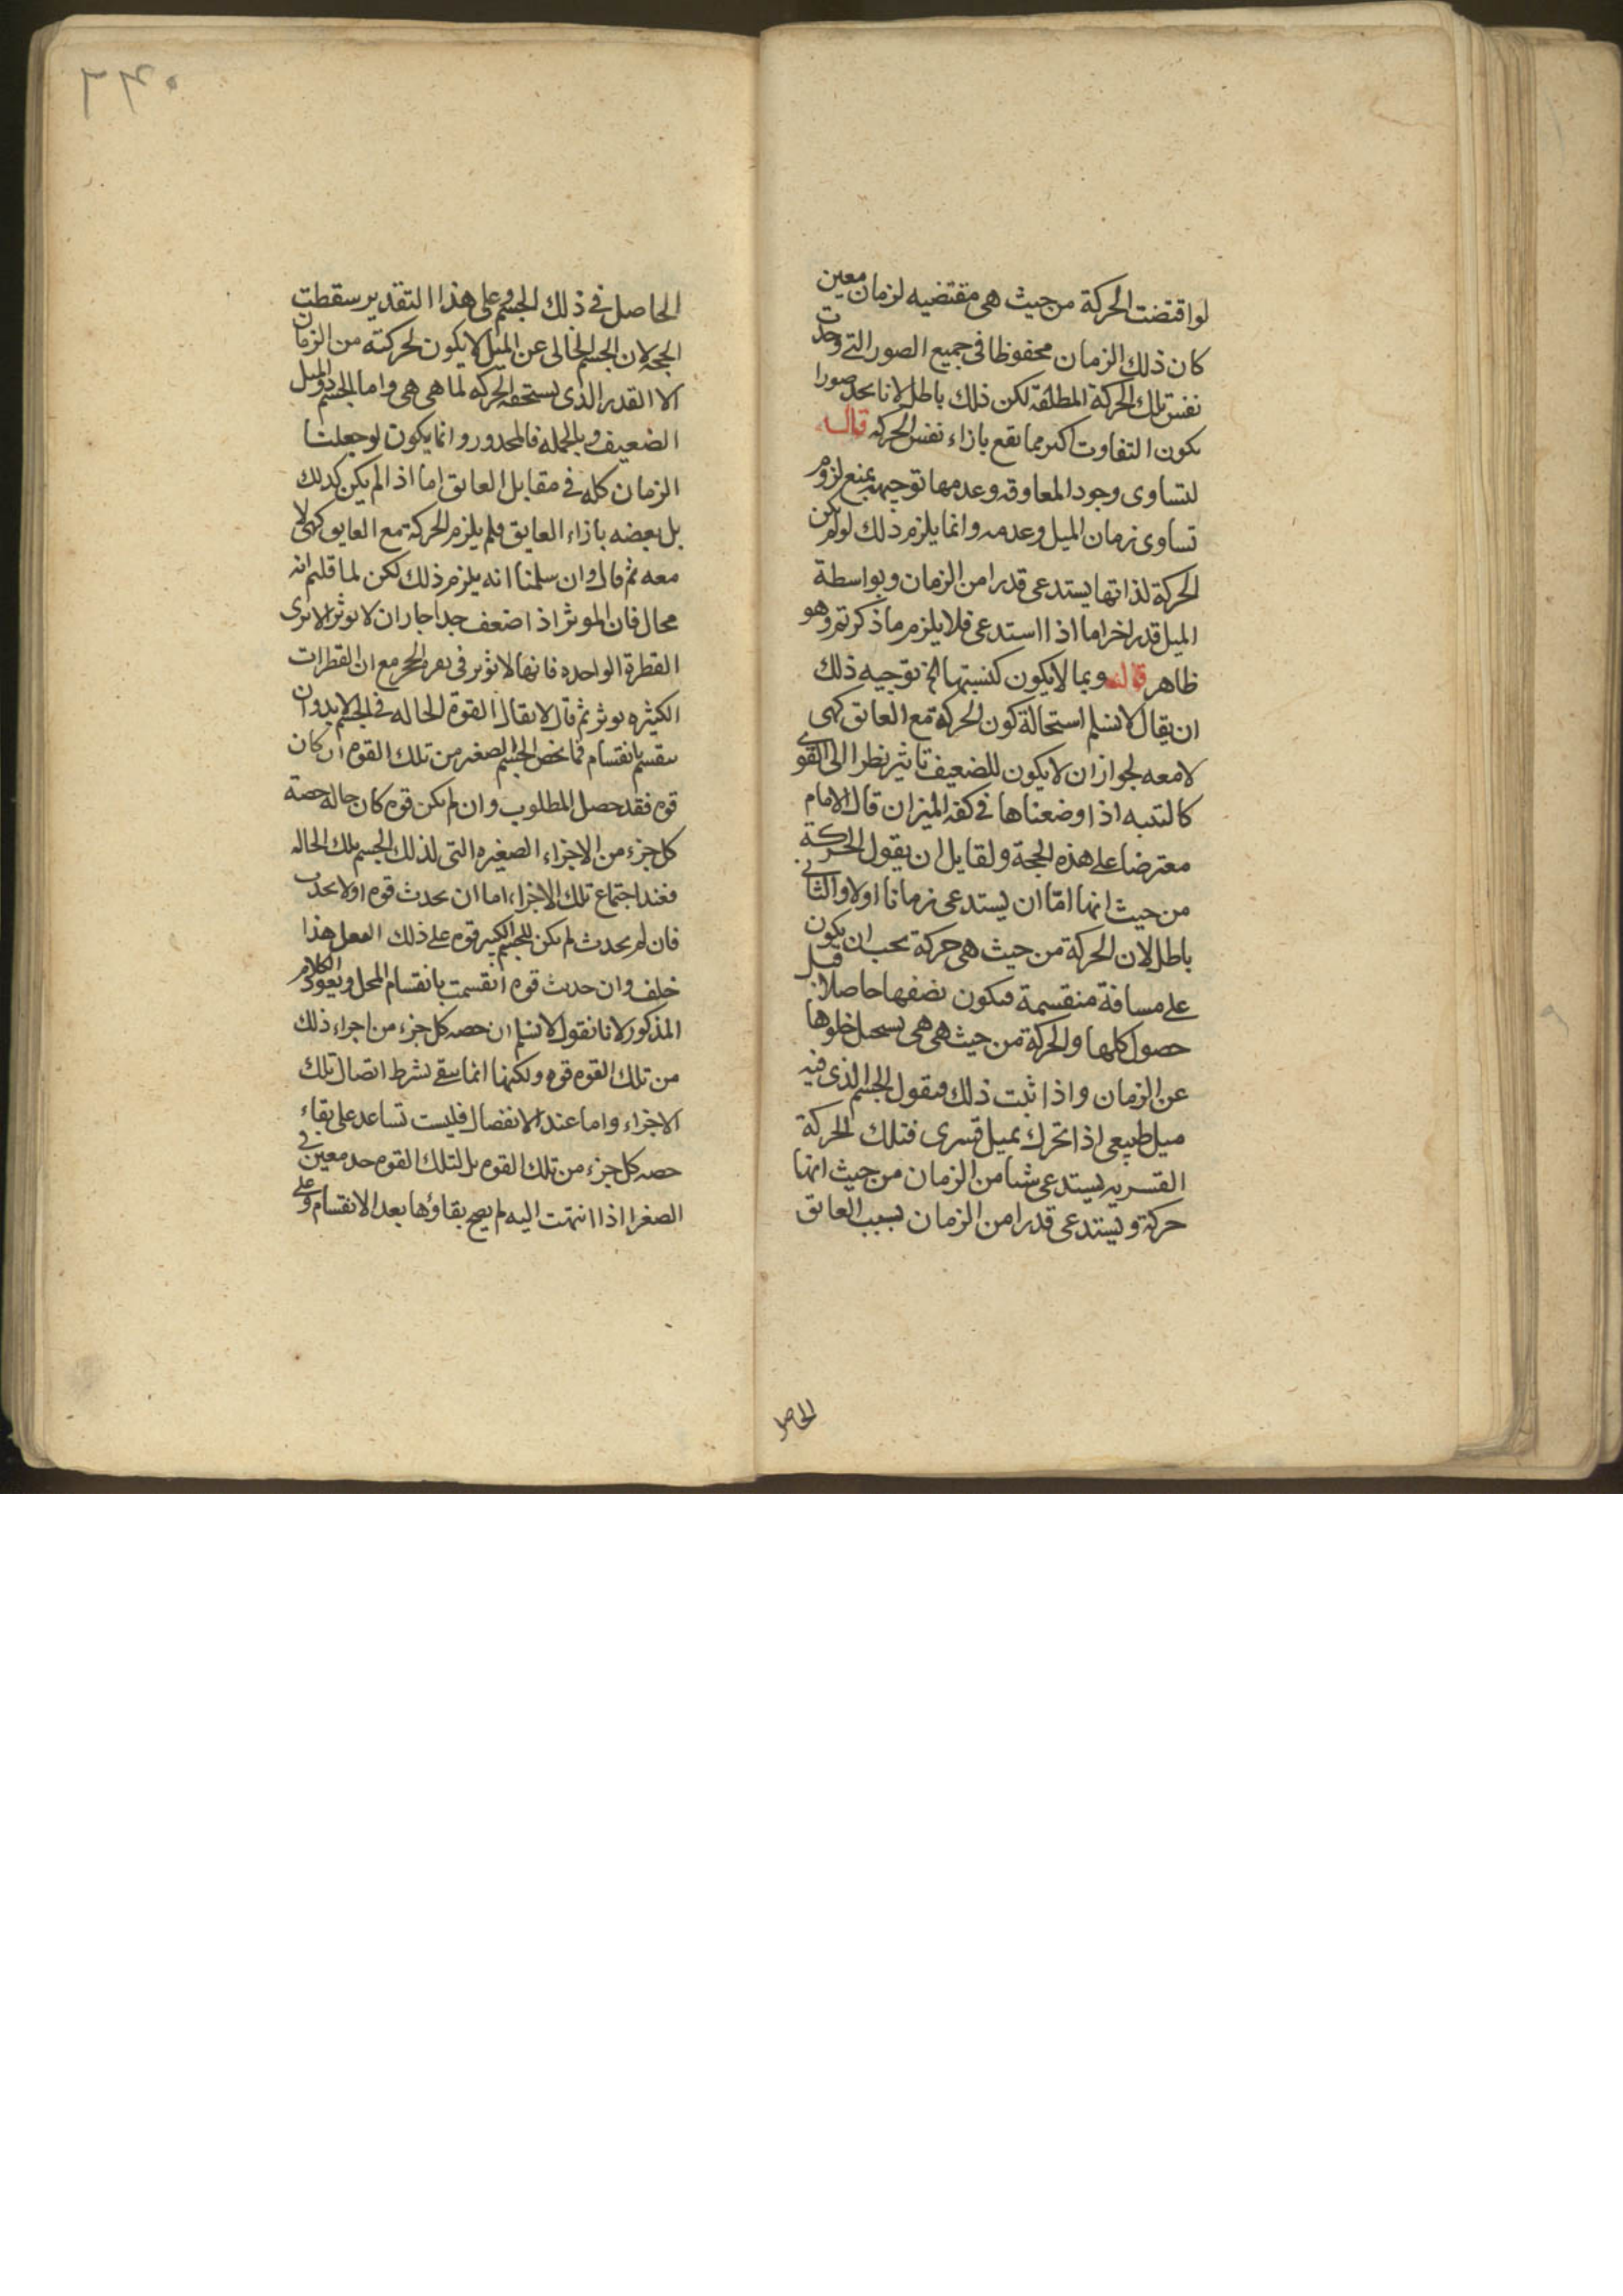 لو اقتضت الحركة من حيث هى مقتضيه لزمان معين
كان ذلك الزمان محفوظا فى جميع الصور التى وجدت
نفس تلك الحركة المطلقة لكن ذلك باطل لانا نجد صورا
يكون التفاوت اكبر مما يقع بازاء نفس الحركه قال
لتساوى وجود المعاوقه وعدمها توجيهه بمنع لزوم
تساوى زمان الميل وعدمه وانما يلزم ذلك لو لم يكن
الحركة لذاتها يستدعى قدرا من الزمان وبواسطة
الميل قدر اخر اما اذا استدعى فلا يلزم ما ذكرتم وهو
ظاهر قال وبما لا يكون كنسبتها الخ توجيه ذلك
ان يقال لا نسلم استحالة كون الحركة مع العائق كهى
لا معه لجواز ان لا يكون للضعيف تاثير نظرا الى القوى
كالتبنه اذا وضعناها فى كفة الميزان قال الامام
معترضا على هذه الحجة ولقايل ان يقول الحركة
من حيث انها امّا ان يستدعى زمانا اولا والثانى
باطل لان الحركة من حيث هى حركة يجب ان يكون
على مسافة منقسمة فيكون نصفها حاصلا قبل
حصول كلها والحركة من حيث هى هى يستحيل خلوها
عن الزمان واذا ثبت ذلك فيقول الجسم الذى فيه
ميل طبيعى اذا تحرك بميل قسرى فتلك الحركة
القسريه يستدعى شيا من الزمان من حيث انها
حركة ويستدعى قدرا من الزمان بسبب العائق
الحاصل
٢٢٥
الحاصل فى ذلك الجسم وعلى هذا التقدير سقطت
الحجه لان الجسم الخالى عن الميل لا يكون لحركته من الزمان
الا القدر الذى يستحقه الحركه لما هى هى واما الجسم ذو الميل
الضعيف وبالجمله فالمحذور وانما يكون لو جعلنا
الزمان كله فى مقابل العائق اما اذا لم يكن كذلك
بل بعضه بازاء العايق فلم يلزم الحركة مع العايق كهى لا
معه ثم قال وان سلمنا انه يلزم ذلك لكن لما قلتم انه
محال فان الموثر اذا ضعف جدا جاز ان لا يوثر الا ترى
القطرة الواحده فانها لا تؤثر فى نقره الحجر مع ان القطرات
الكثيره يوثر ثم قال لا يقال القوة الحاله فى الجسم لا بد وان
ينقسم بانقسام فما يخص الجسم الصغير من تلك القوه ان كان
قوه فقد حصل المطلوب وان لم يكن قوه كان حاله حصة
كل جزء من الاجزاء الصغيره التى لذلك الجسم تلك الحاله
فعند اجتماع تلك الاجزاء اما ان يحدث قوه اولا يحدث
فان لم يحدث لم يكن للجسم الكبير قوه على ذلك الفعل هذا
خلف وان حدث قوه انقسمت بانقسام المحل ويعود الكلام
المذكور لانا نقول لا نسلم ان حصه كل جزء من اجزاء ذلك
من تلك القوه قوه ولكنها انما يبقى بشرط اتصال تلك
الاجزاء واما عند الانفصال فليست تساعد على بقاء
حصه كل جزء من تلك القوه بل لتلك القوه حد معين فى
الصغر اذا انتهت اليه لم يصح بقاؤها بعد الانقسام وعلى